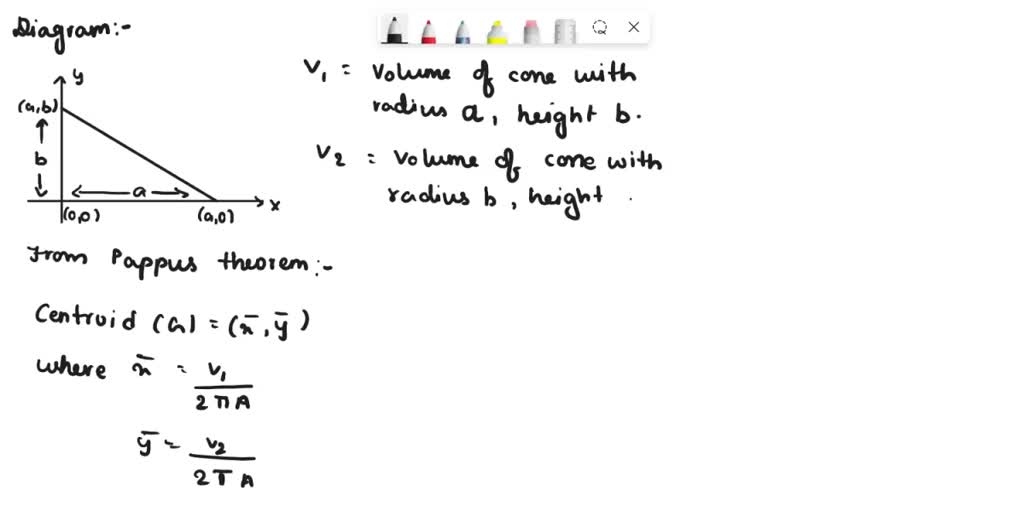 Diagram:-
y
(a,b)
b
a
x
(0,0)
(a,0)
V₁ = Volume of cone with
radius a, height b.
V₂ = Volume of cone with
radius b, height .
From Pappus theorem:-
Centroid (G) = (x̄, ȳ)
where x̄ = V₁
2πA
ȳ = V₂
2πA